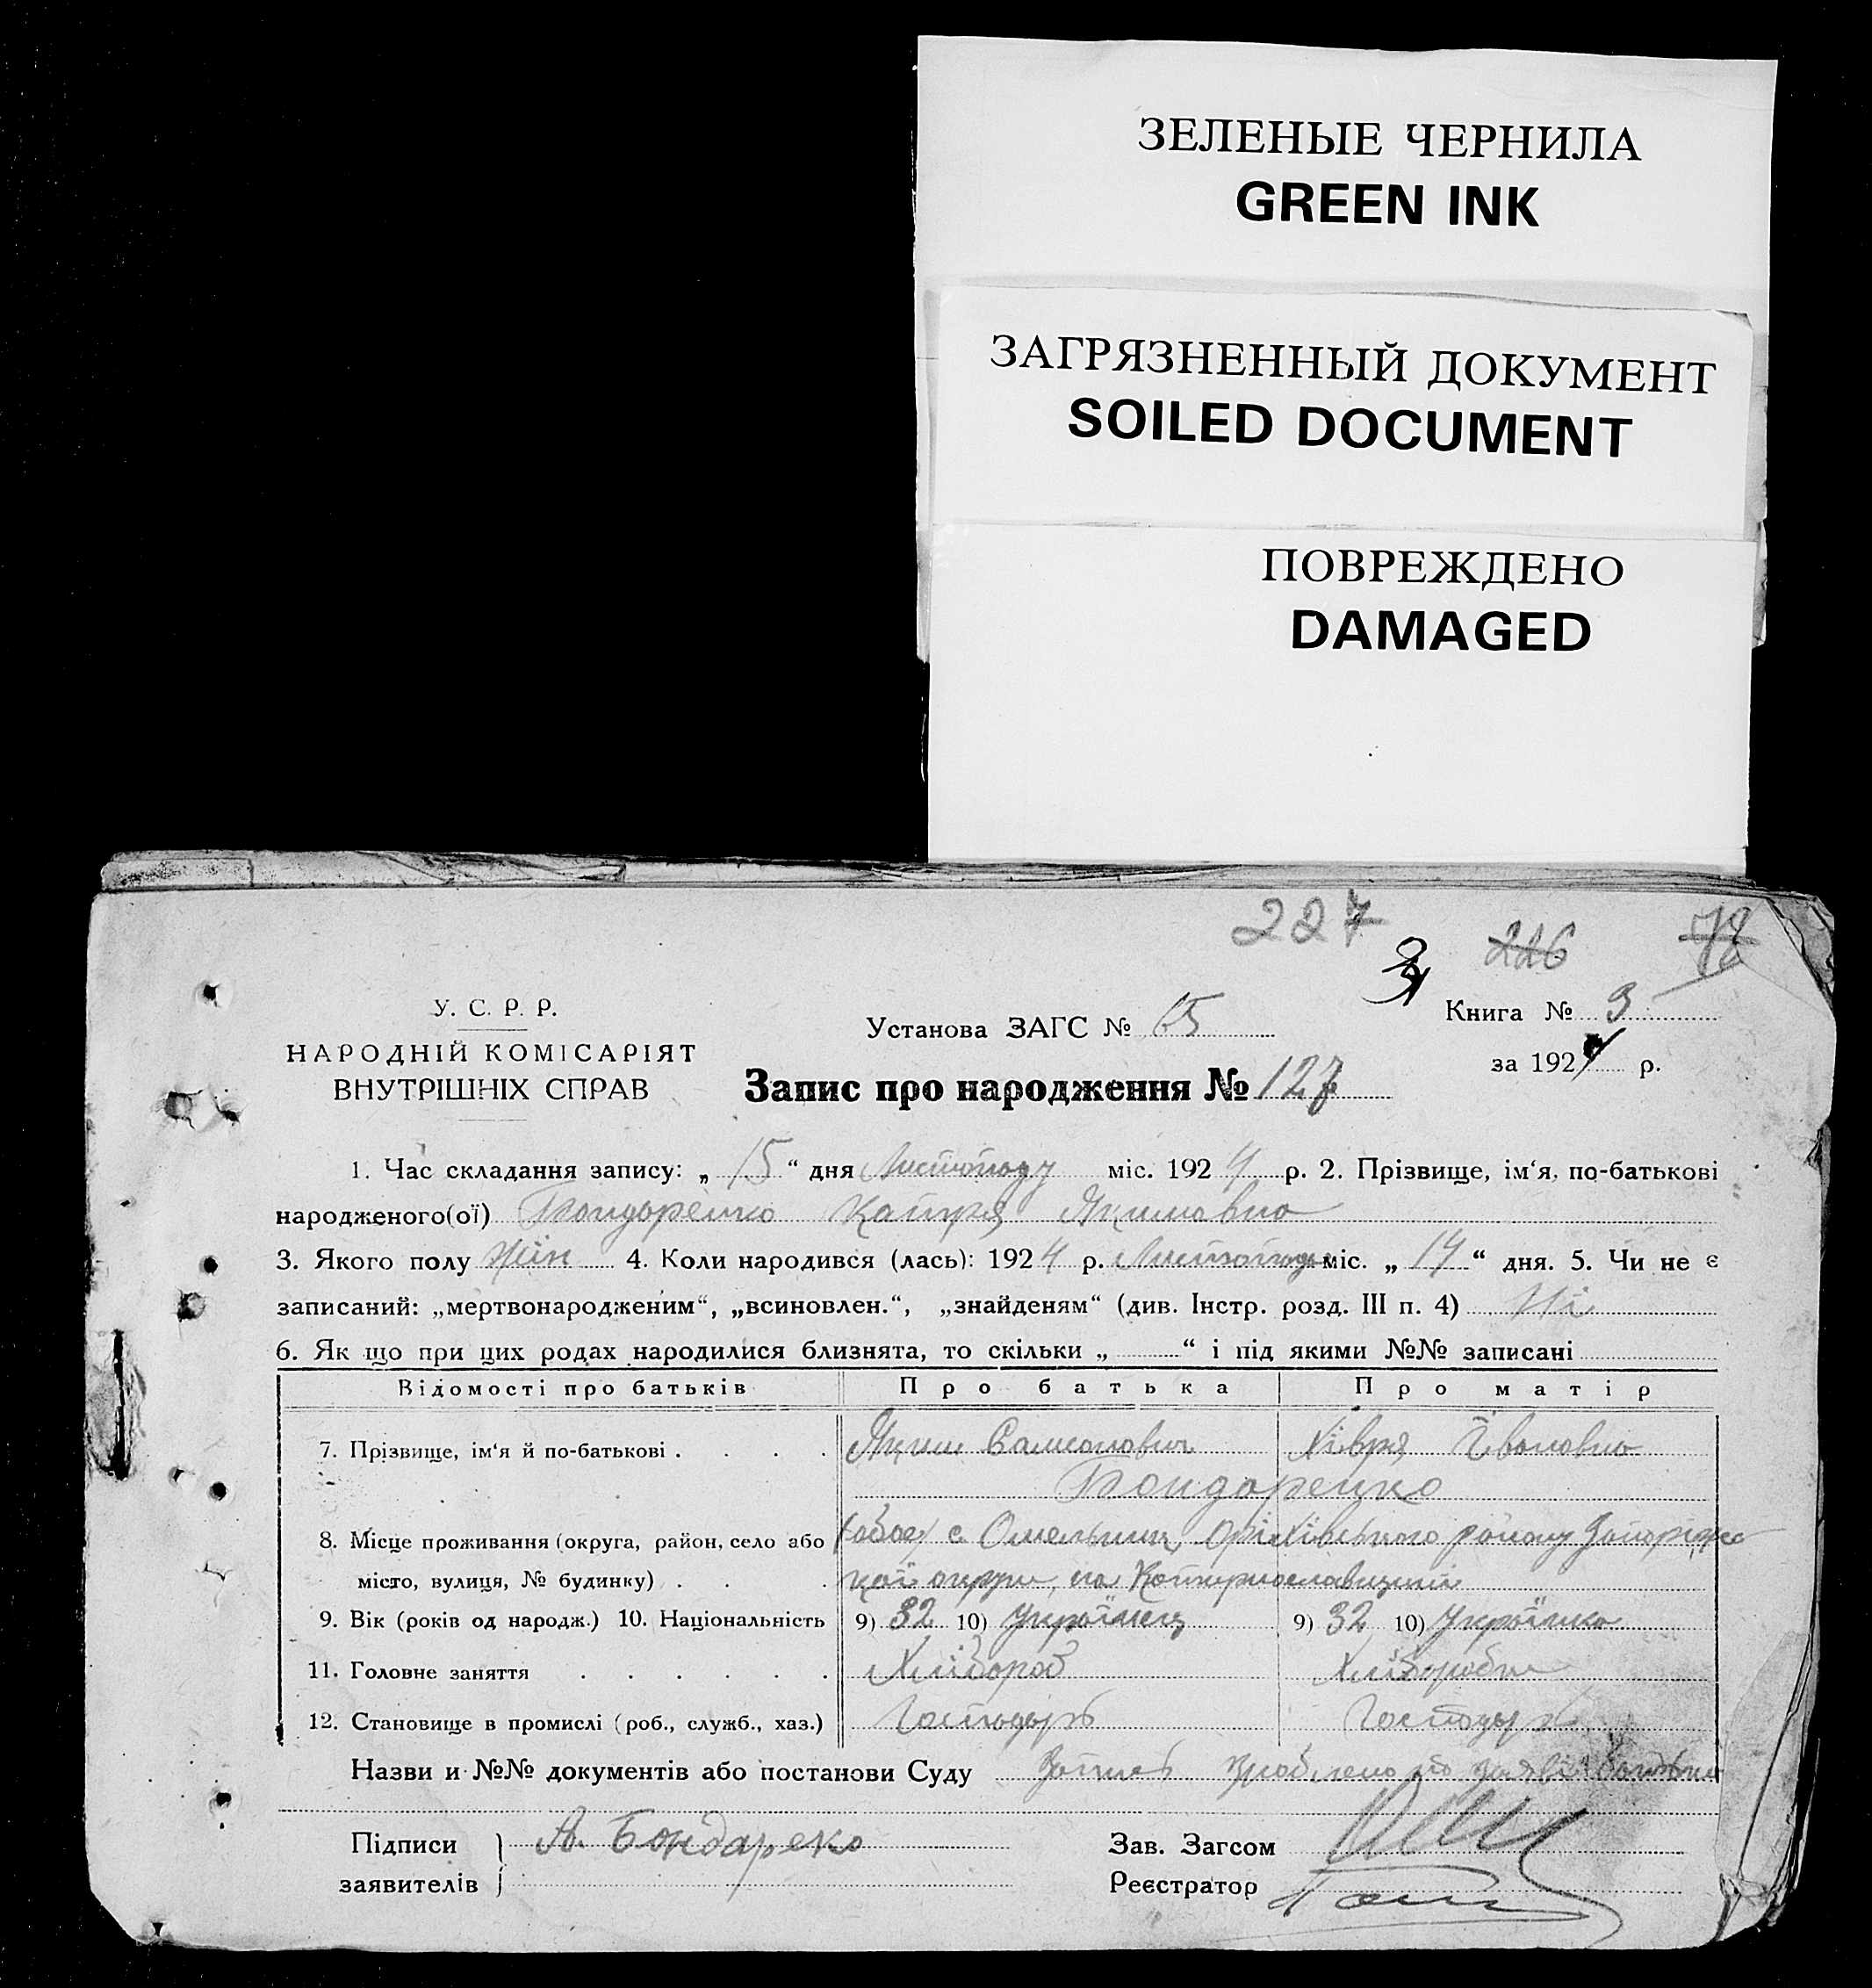 ЗЕЛЕНЫЕ ЧЕРНИЛА
GREEN INK
ЗАГРЯЗНЕННЫЙ ДОКУМЕНТ
SOILED DOCUMENT
ПОВРЕЖДЕНО
DAMAGED
227
226
У. С. Р. Р.
НАРОДНІЙ КОМІСАРІЯТ
ВНУТРІШНІХ СПРАВ
Установа ЗАГС № 65
Книга № 3
за 1924 р.
Запис про народження № 127
1. Час складання запису: „ 15 “ дня Листопаду міс. 1924 р. 2. Прізвище, ім‘я, по-батькові
народженого(ої) Бондаренко Катря Якимовна
3. Якого полу жін 4. Коли народився (лась): 1924 р. Листопада міс. „ 14 “ дня. 5. Чи не є
записаний: „мертвонародженим“, „всиновлен.“, „знайденям“ (див. Інстр. розд. III п. 4) Ні
6. Як що при цих родах народилися близнята, то скільки „ “ і під якими №№ записані
Відомості про батьків Про батька Про матір
7. Прізвище, ім‘я й по-батькові . . . . Яким Самсонович Хівря Івановна
Бондаренко
8. Місце проживання (округа, район, село або (обоє) с Омельник, Оріхівського району Запоріжс
місто, вулиця, № будинку) . . . кої округи, на Катеринославщині
9. Вік (років од народж.) 10. Національність 9) 32 10) Українец 9) 32 10) Українка
11. Головне заняття . . . . . . Хлібороб Хліборобка
12. Становище в промислі (роб., служб., хаз.) Господарь Господарь
Назви и №№ документів або постанови Суду Запись зроблено по заяві батька
Підписи А. Бондареко
заявителів
Зав. Загсом
Реєстратор